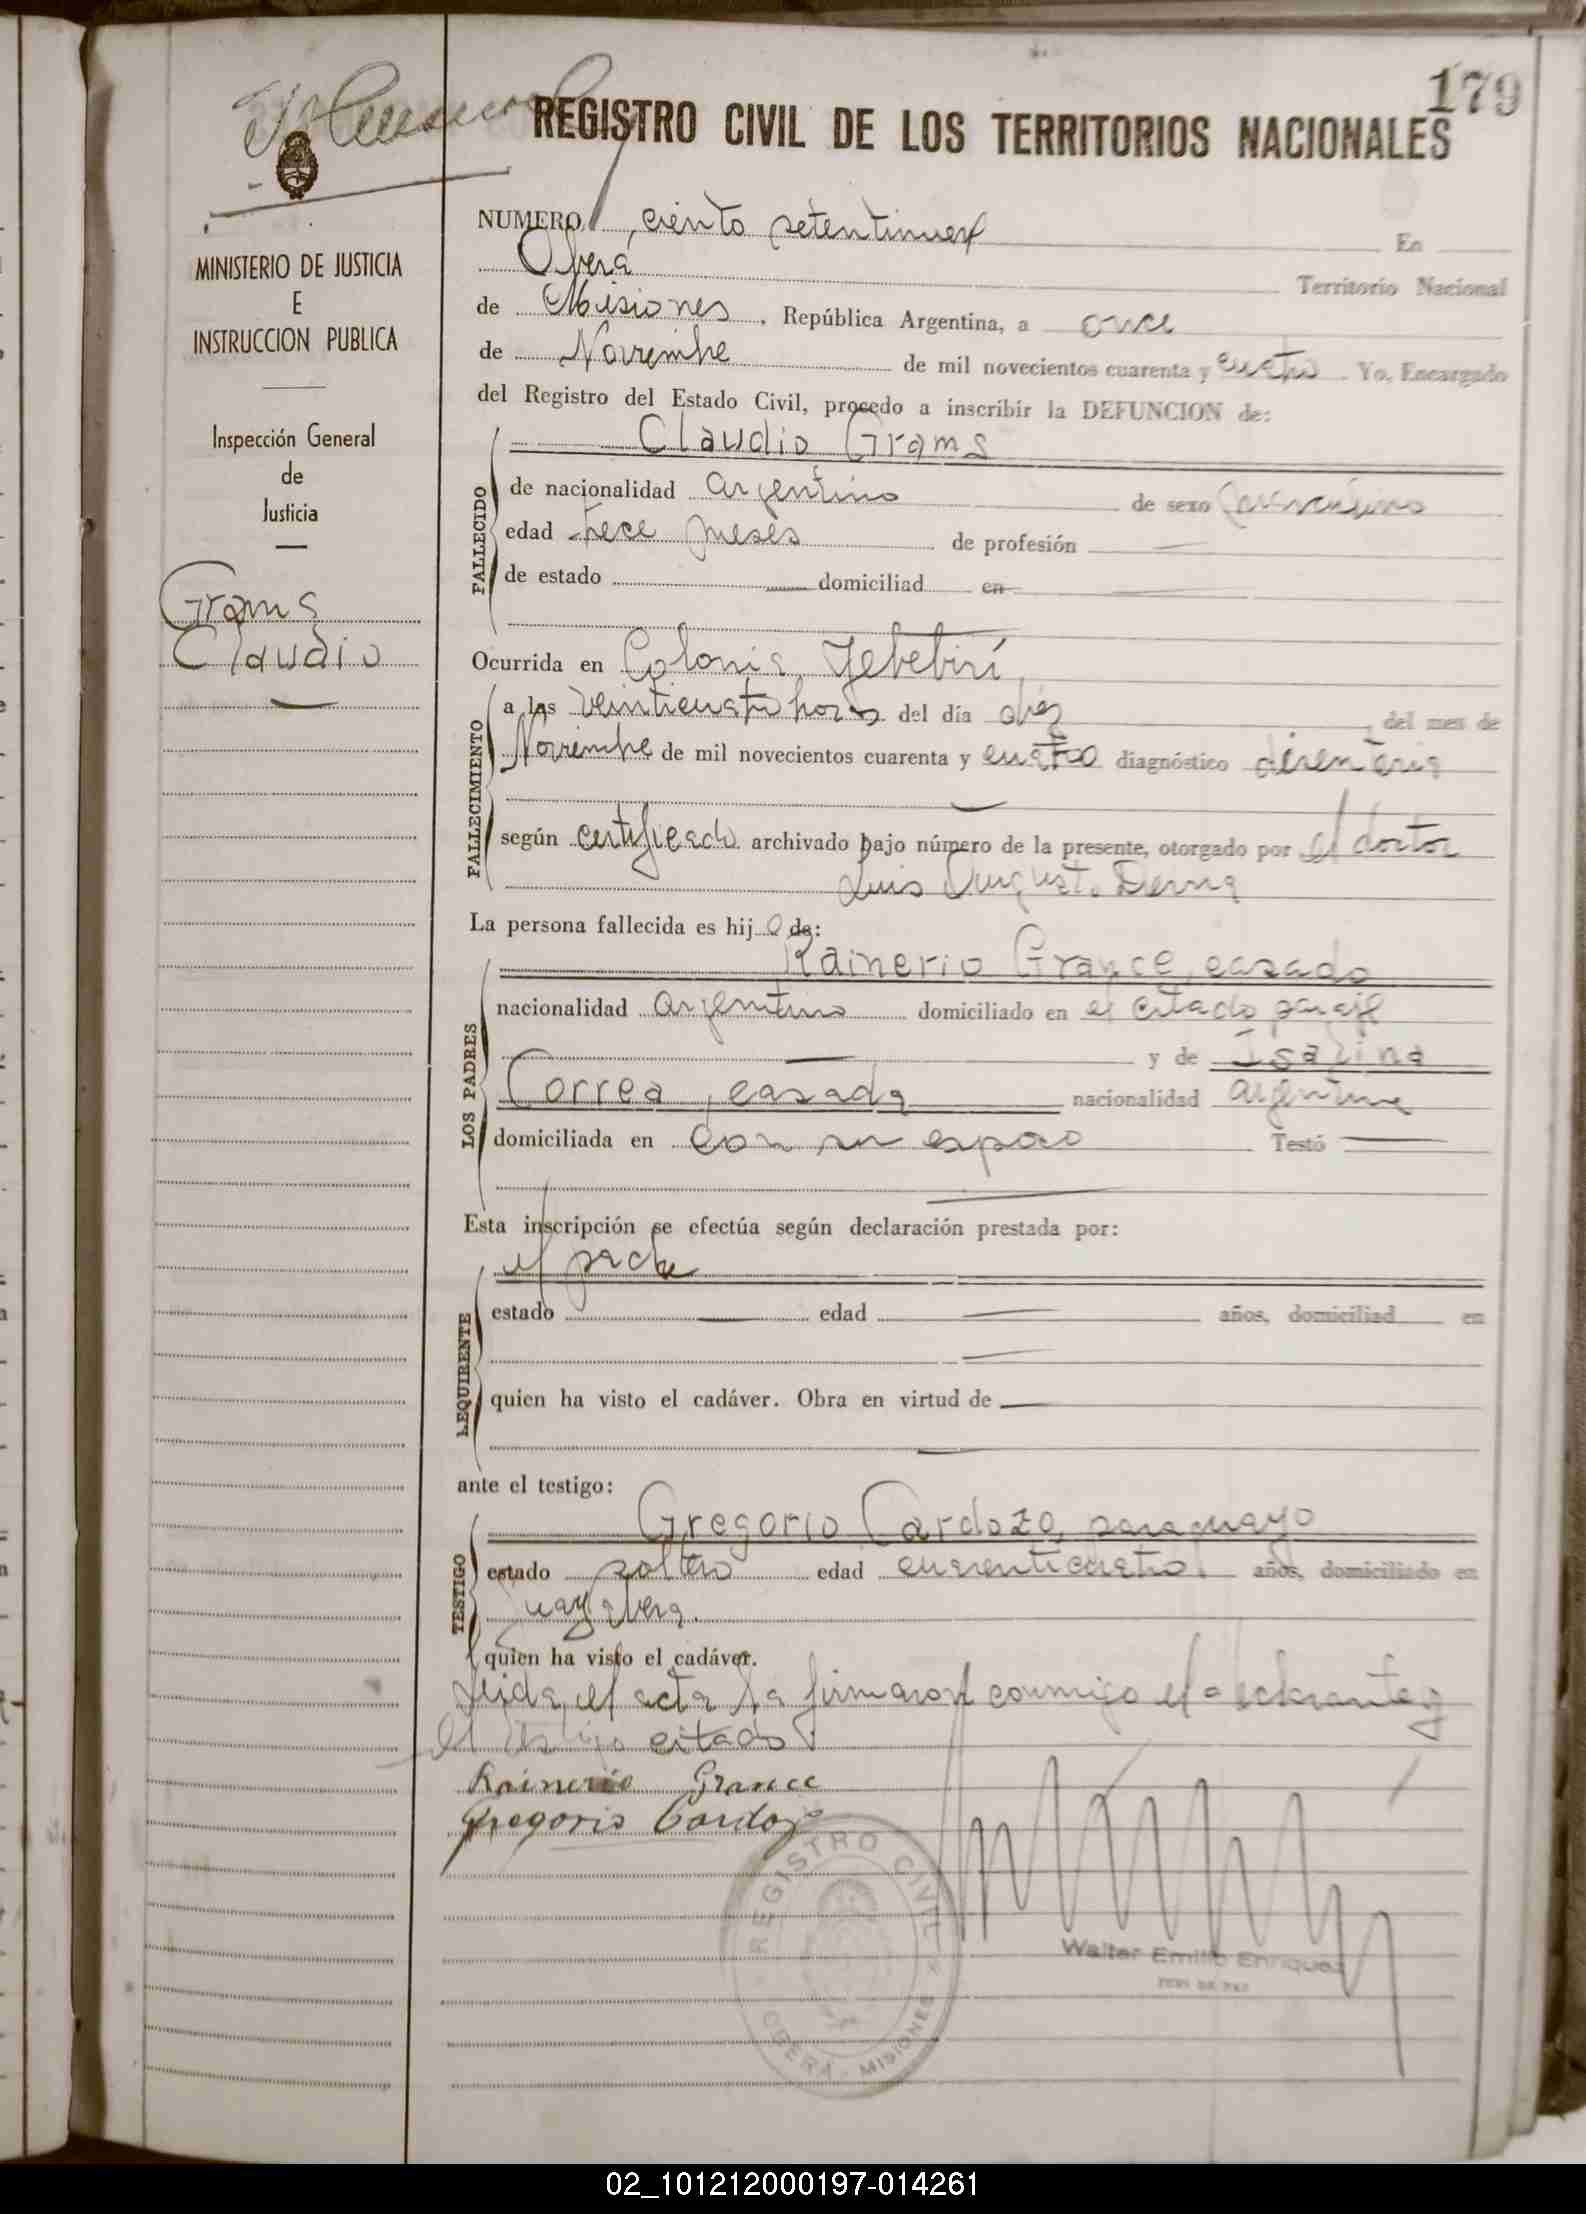 179
REGISTRO CIVIL DE LOS TERRITORIOS NACIONALES
MINISTERIO DE JUSTICIA
E
INSTRUCCION PUBLICA
Inspección General
de
Justicia
Grams
Claudio
NUMERO ciento setentinueve En
Oberá Territorio Nacional
de Misiones, República Argentina, a once
de Noviembre de mil novecientos cuarenta y cuatro. Yo, Encargado
del Registro del Estado Civil, procedo a inscribir la DEFUNCION de:
FALLECIDO
Claudio Grams
de nacionalidad argentino de sexo masculino
edad trece meses de profesión
de estado domiciliad en
Ocurrida en Colonia Yebebirí
FALLECIMIENTO
a las veinticuatro horas del día diez del mes de
Noviembre de mil novecientos cuarenta y cuatro diagnóstico disenteria
según certificado archivado bajo número de la presente, otorgado por el doctor
Luis Augusto Derna
La persona fallecida es hijo de:
LOS PADRES
Rainerio Grance, casado
nacionalidad argentino domiciliado en el citado paraje
y de Isalina
Correa, casada nacionalidad argentina
domiciliada en con su esposo Testó
Esta inscripción se efectúa según declaración prestada por:
REQUIRENTE
el padre
estado edad años, domiciliad en
quien ha visto el cadáver. Obra en virtud de
ante el testigo:
TESTIGO
Gregorio Cardozo, paraguayo
estado soltero edad cuarenticuatro años, domiciliado en
Guayabera.
quien ha visto el cadáver.
Leida el acta la firmaron conmigo el declarante y
el testigo citado.
Rainerio Grance
Gregorio Cardozo
REGISTRO CIVIL
OBERÁ - MISIONES
Walter Emilio Enriquez
JUEZ DE PAZ
02_101212000197-014261